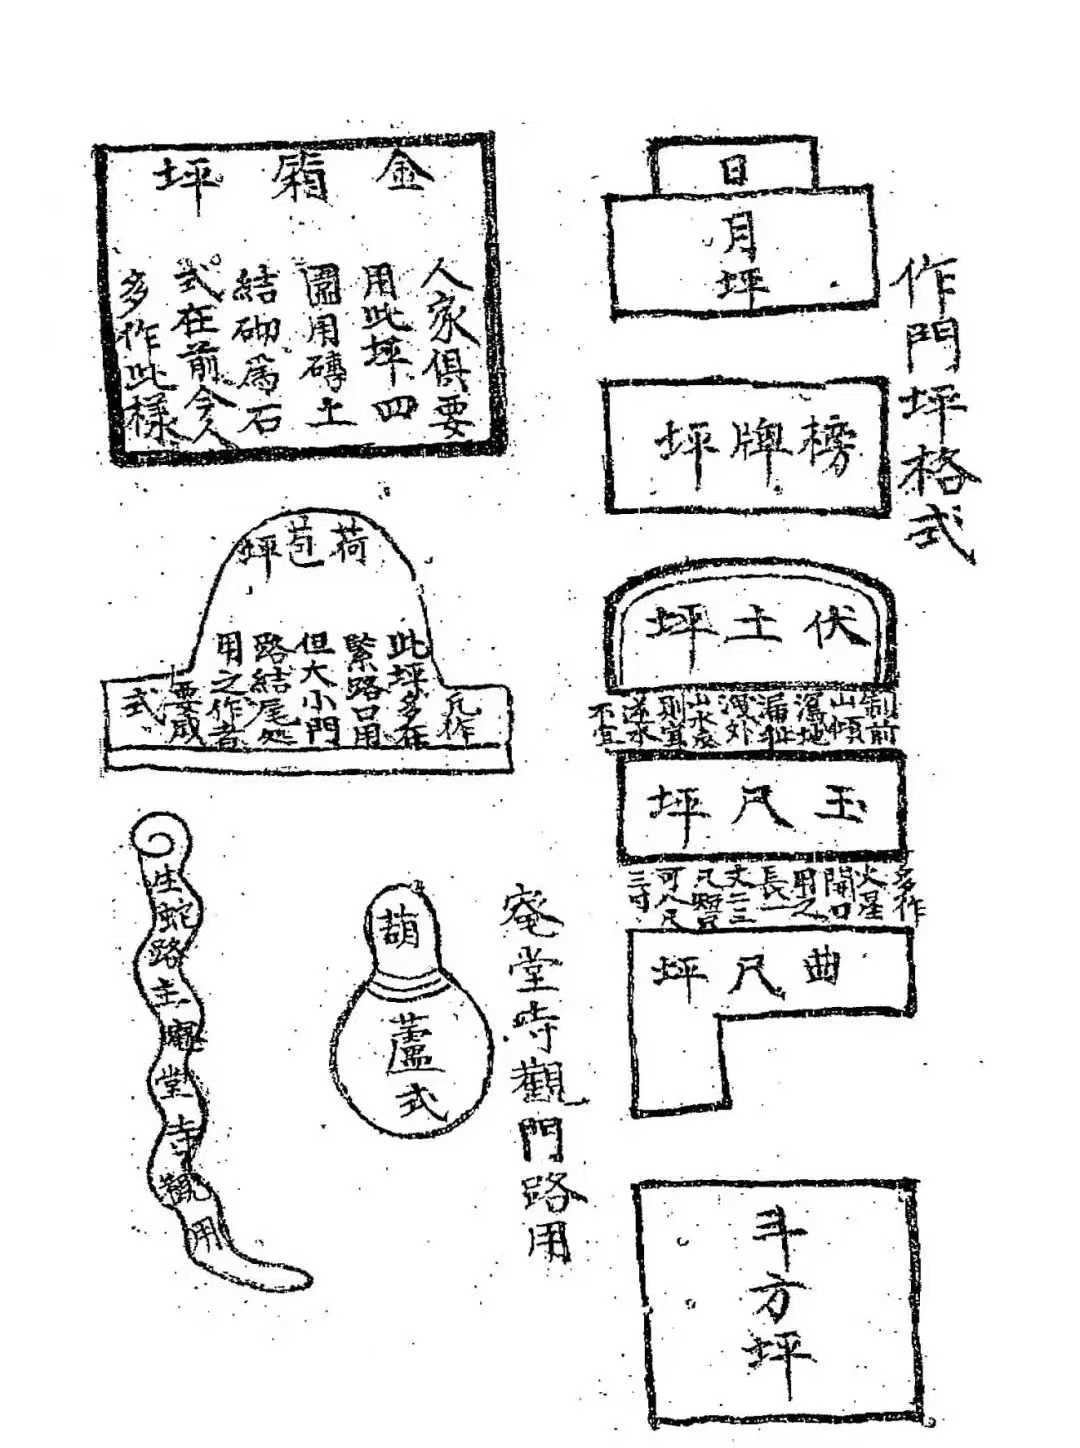 作門坪格式
日
月
坪
榜牌坪
伏土坪
制前
山傾
瀉地
漏
外
山水
則宜
逆水
不宜
玉尺坪
多作
火星
開口
用之
長一
丈二三
尺
可八尺
三寸
曲尺坪
斗方坪
金箱坪
人家俱要
用此坪四
圍用磚土
結砌爲石
式在前今人
多作此樣
荷苞坪
凡作
此坪多在
緊路口用
但大小門
路結尾処
用之作者
要成
式
庵堂寺觀門路用
葫
蘆
式
生蛇路主庵堂寺觀用